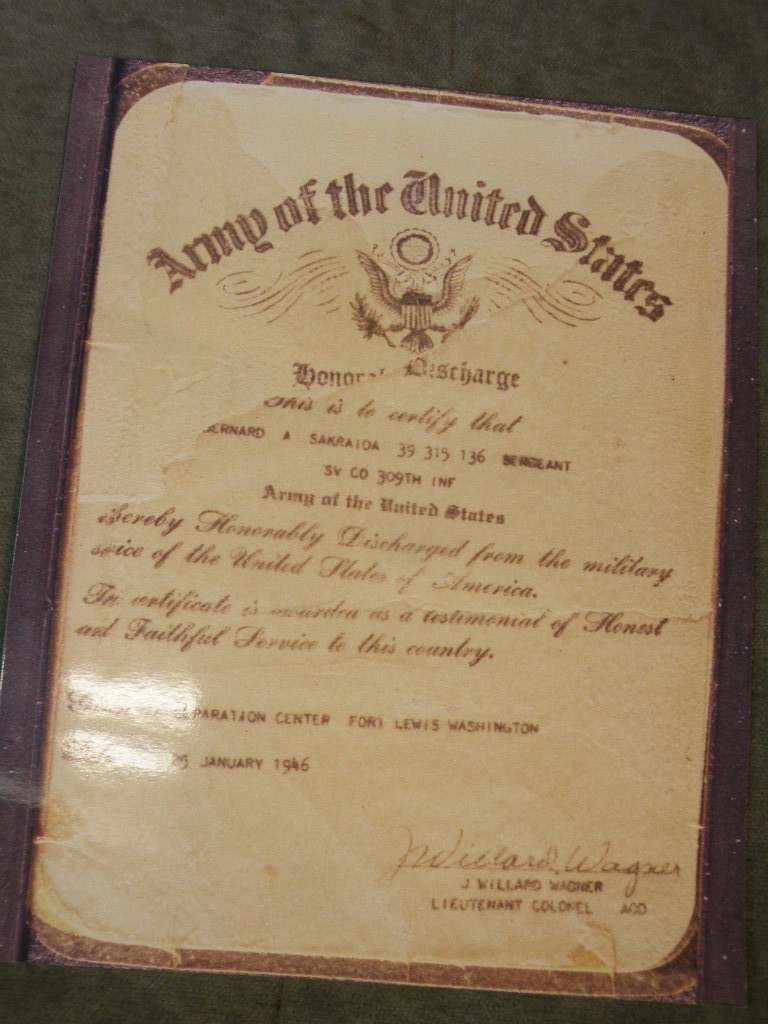 Army of the United States
Honora Discharge
This is to certify that
BERNARD A SAKRAIDA 39 315 136 SERGEANT
SV CO 309TH INF
Army of the United States
hereby Honorably Discharged from the military
of the United States of America.
certificate is as a testimonial of Honest
and Faithful Service to this country.
CENTER FORT LEWIS WASHINGTON
JANUARY 1946
J Willard Wagner
J WILLARD WAGNER
LIEUTENANT COLONEL AGD